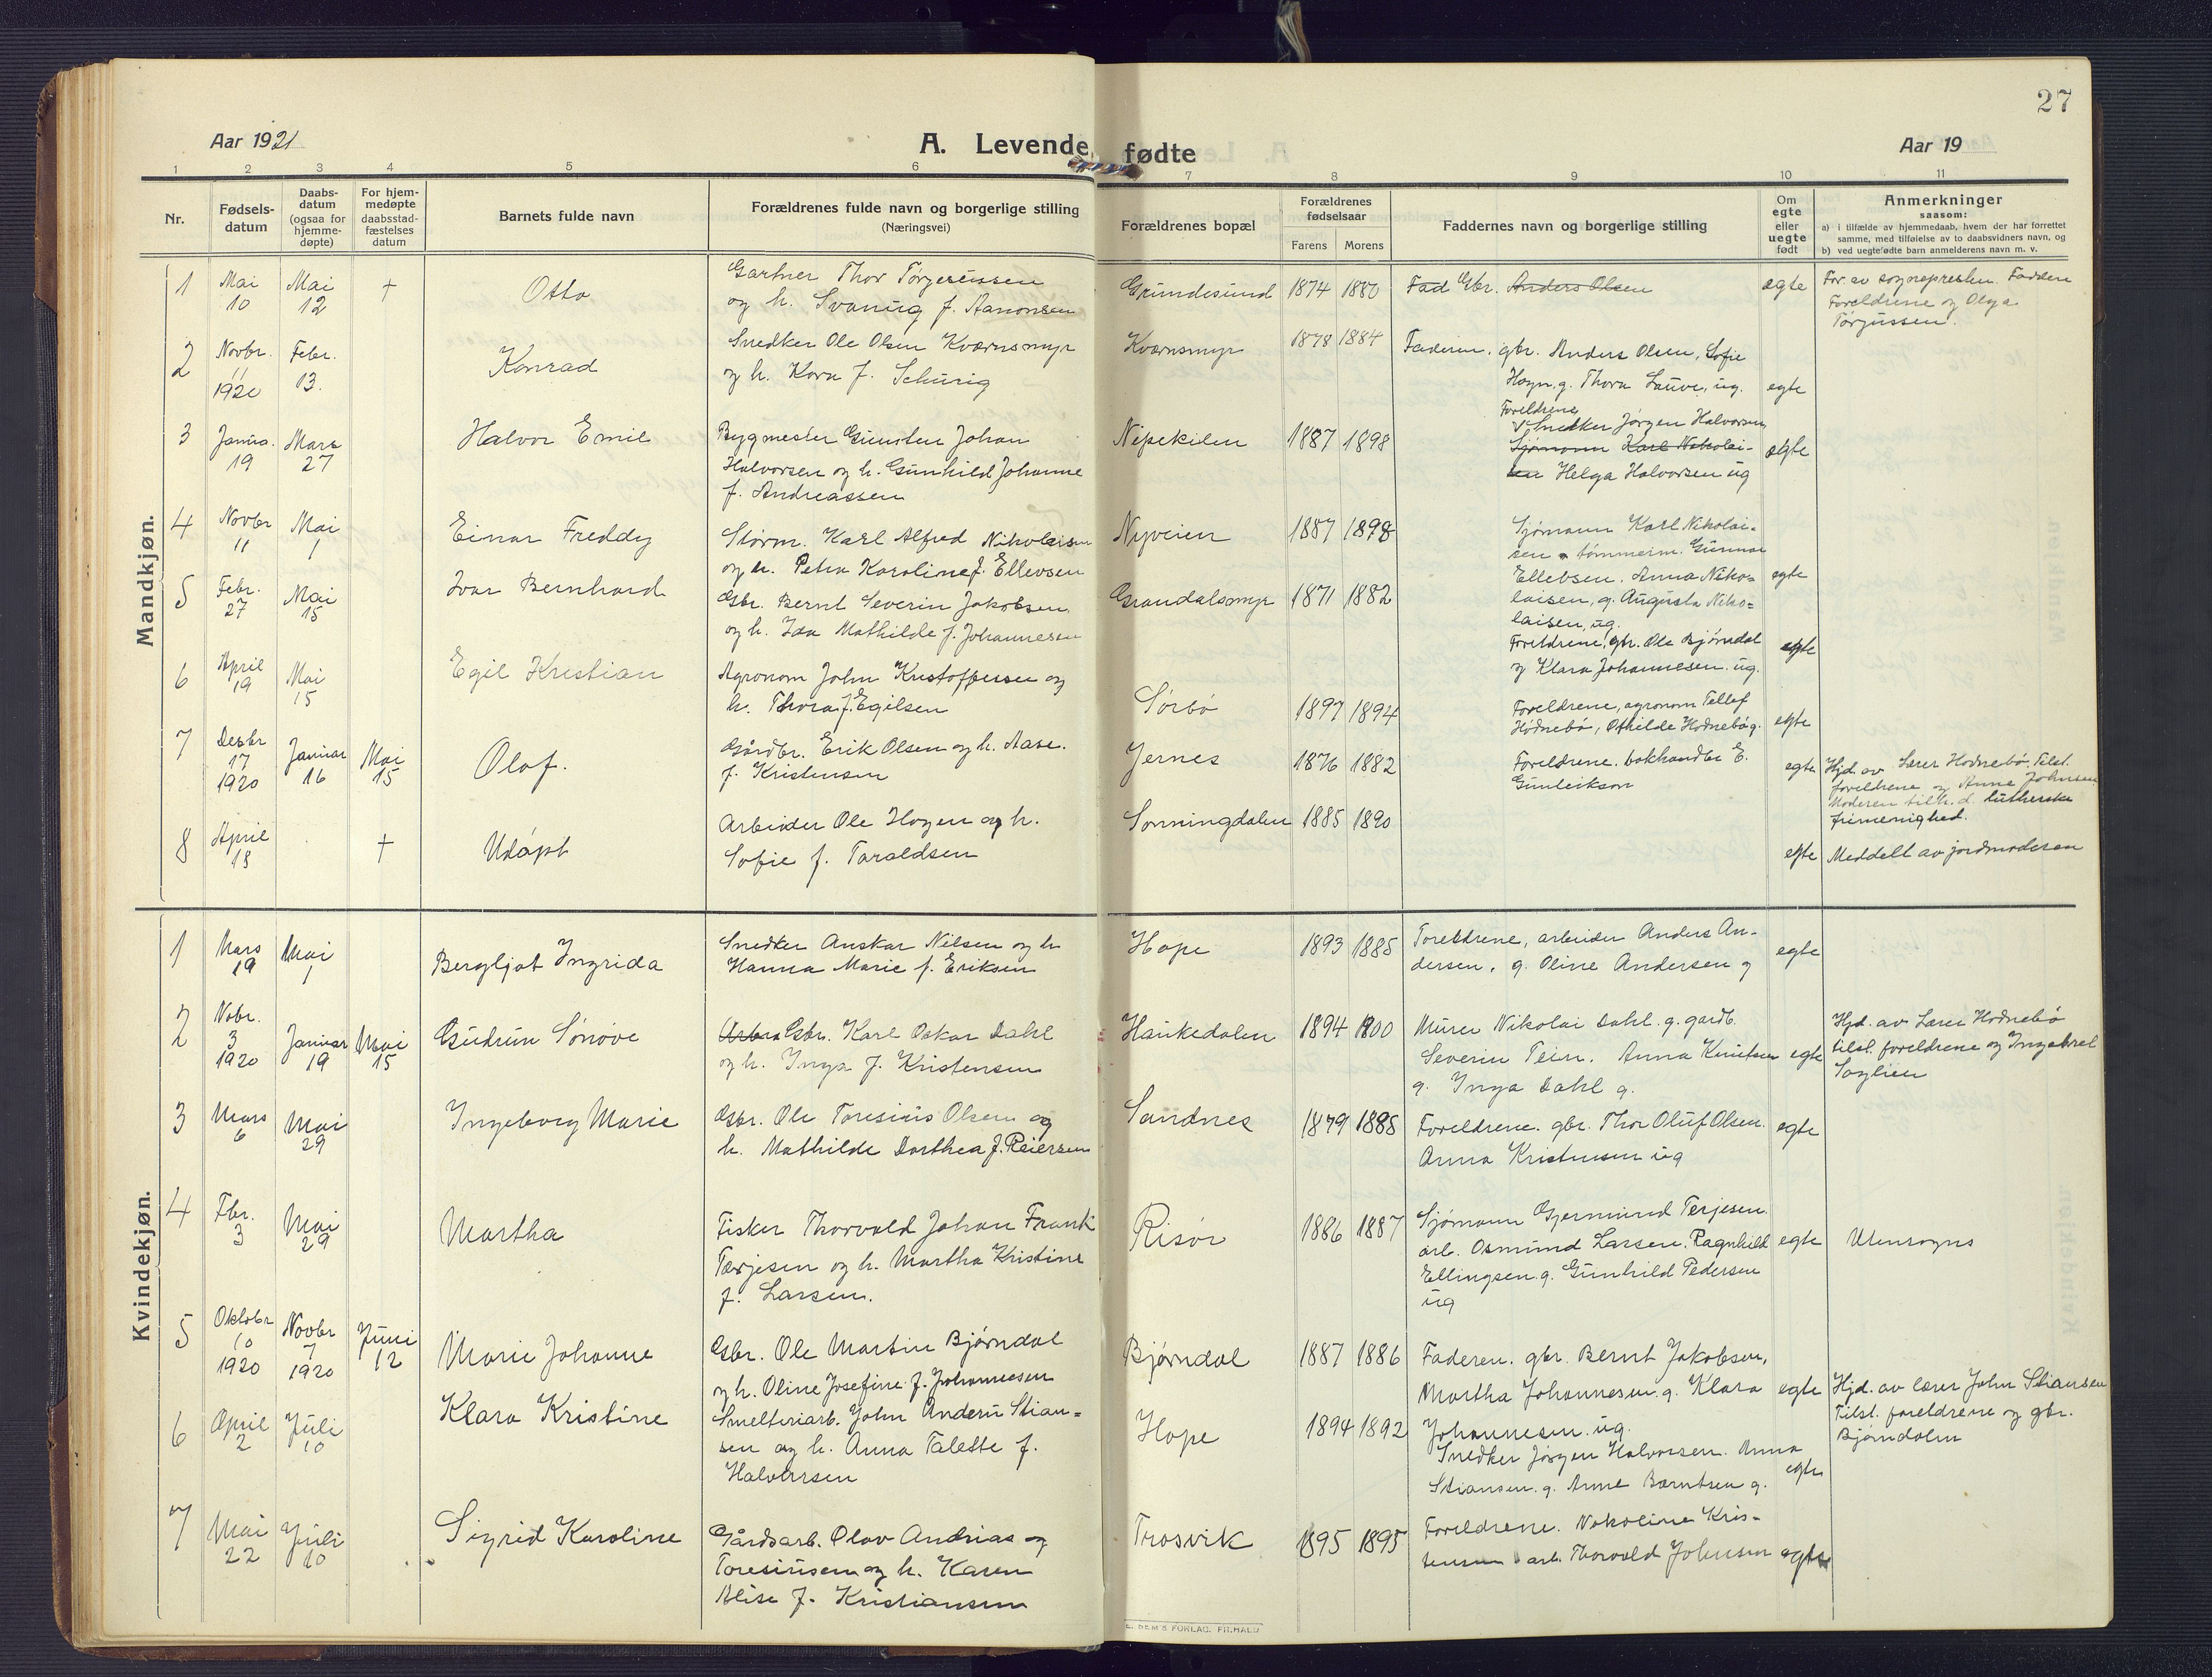 27
Aar 1921
A. Levende fødte
Aar 19
1 2 3 4 5 6 7 8 9 10 11
Nr.
Fødsels-
datum
Daabs-
datum
(ogsaa for
hjemme-
døpte)
For hjem-
medøpte
daabsstad-
fæstelses
datum
Barnets fulde navn
Forældrenes fulde navn og borgerlige stilling
(Næringsvei)
Forældrenes bopæl
Forældrenes
fødselsaar
Farens Morens
Faddernes navn og borgerlige stilling
Om
egte
eller
uegte
født
Anmerkninger
saasom:
a) i tilfælde av hjemmedaab, hvem der har forrettet
samme, med tilføielse av to daabsvidners navn, og
b) ved uegtefødte barn anmelderens navn m. v.
Mandkjøn.
1 Mai 10 Mai 12 † Otto
Gartner Thor Tørgersussen
og h. Svanug f. Aanonsen
Grundesund 1874 1880 Fad Gbr. Anders Olsen egte
For. av sognepresten. Faddere
Foreldrene og Olga
Torjussen.
2 Novbr. 11 1920 Febr. 13. Konrad
Snedker Ole Olsen Kværnsmyr
og h. Kora f. Schurig
Kværnsmyr 1878 1884
Faderen, gbr. Anders Olsen, Sofie
Hagn. g. Thora Lauve, ug. egte
3 Janua. 19 Mars 27 Halvor Emil
Bygmester Gunsten Johan
Halvorsen og h. Gunhild Johanne
f. Andreassen
Nipekilen 1887 1898
Foreldrene
Snedker Jørgen Halvorsen
Sjømann Karl Nikolai-
sen Helga Halvorsen ug egte
4 Novbr 11 Mai 1 Einar Freddy
Storm. Karl Alfred Nikolaisen
og h. Petra Karoline f. Ellevsen
Nyveien 1887 1898
Sjømann Karl Nikolai-
sen tømmerm. Gunnar
Ellebsen. Anna Niko-
laisen, g. Augusta Niko-
laisen, ug. egte
5 Febr. 27 Mai 15 Ivar Bernhard
Gbr. Bernt Severin Jakobsen
og h. Ida Mathilde f. Johannesen
Grandalsmyr 1871 1882
Foreldrene, gbr. Ole Bjørndal
og Klara Johannesen. ug. egte
6 April 19 Mai 15 Egil Kristian
Agronom John Kristoffersen og
h. Thora f. Egilsen
Sørbø 1897 1894
Foreldrene, agronom Tellef
Hødnebø, Othilde Hødnebø g. egte
7 Desbr 17 1920 Januar 16 Mai 15 Olaf.
Gårdbr. Erik Olsen og h. Aase.
f. Kristensen
Jernes 1876 1882
Foreldrene. bokhandler E.
Gunleikson egte
Hjd. av Lærer Hødnebø. Tilst.
foreldrene og Anne Johnsen
Moderen tilh. d. lutherske
frimenighed.
8 April 18 † Udøpt
Arbeider Ole Hagen og h.
Sofie f. Taraldsen
Sonningdalen 1885 1890 egte Meddelt av jordmoderen
Kvindekjøn.
1 Mars 19 Mai 1 Bergljot Ingrida
Snedker Anskar Nilsen og h
Hanna Marie f. Eriksen
Hope 1893 1885
Foreldrene, arbeider Anders An-
dersen, g. Oline Andersen g egte
2 Nobr. 3 1920 Januar 19 Mai 15 Gudrun Sønøve
Gbr. Karl Oskar Dahl
og h. Inga f. Kristensen
Haukedalen 1894 1900
Murer Nikolai Dahl. g. gardb.
Severin Teien. Anna Knutsen egte
g. Inga Dahl g.
Hjd. av Lærer Hødnebø
tilst. foreldrene og Ingebret
Saglien
3 Mars 6 Mai 29 Ingeborg Marie
Gbr. Ole Toresius Olsen og
h. Mathilde Dorthea f. Reiersen
Sandnes 1879 1885
Foreldrene. gbr. Thor Oluf Olsen. egte
Anna Kristensen ug
4 Fbr. 3 Mai 29 Martha
Fisker Thorvald Johan Frank
Tærjesen og h. Martha Kristine
f. Larsen.
Risør 1886 1887
Sjømann Gjermund Terjesen.
arb. Osmund Larsen. Ragnhild egte Utensogns
Ellingsen. g. Gunhild Pedersen
ug
5 Oktobr 10 1920 Novbr 7 1920 Juni 12 Marie Johanne
Gbr. Ole Martin Bjørndal
og h. Oline Josefine f. Johannesen
Bjørndal 1887 1886
Faderen. gbr. Bernt Jakobsen,
Martha Johannesen, g. Klara egte
Johannesen. ug.
Hjd. av lærer John Stiansen
Tilst. foreldrene og gbr.
Bjørndalen
6 April 2 Juli 10 Klara Kristine
Smelteriarb. John Anders Stian-
sen og h. Anna Talette f.
Halvorsen
Hope 1894 1892
Snedker Jørgen Halvorsen. Anna
Stiansen. g. Anne Berntsen g. egte
7 Mai 22 Juli 10 Sigrid Karoline
Gårdsarb. Olav Andrias og
Toresiusen og h. Karen
Elise f. Kristiansen
Trosvik 1895 1895
Foreldrene. Nikoline Kris-
tensen arb. Thorvald Johnsen egte